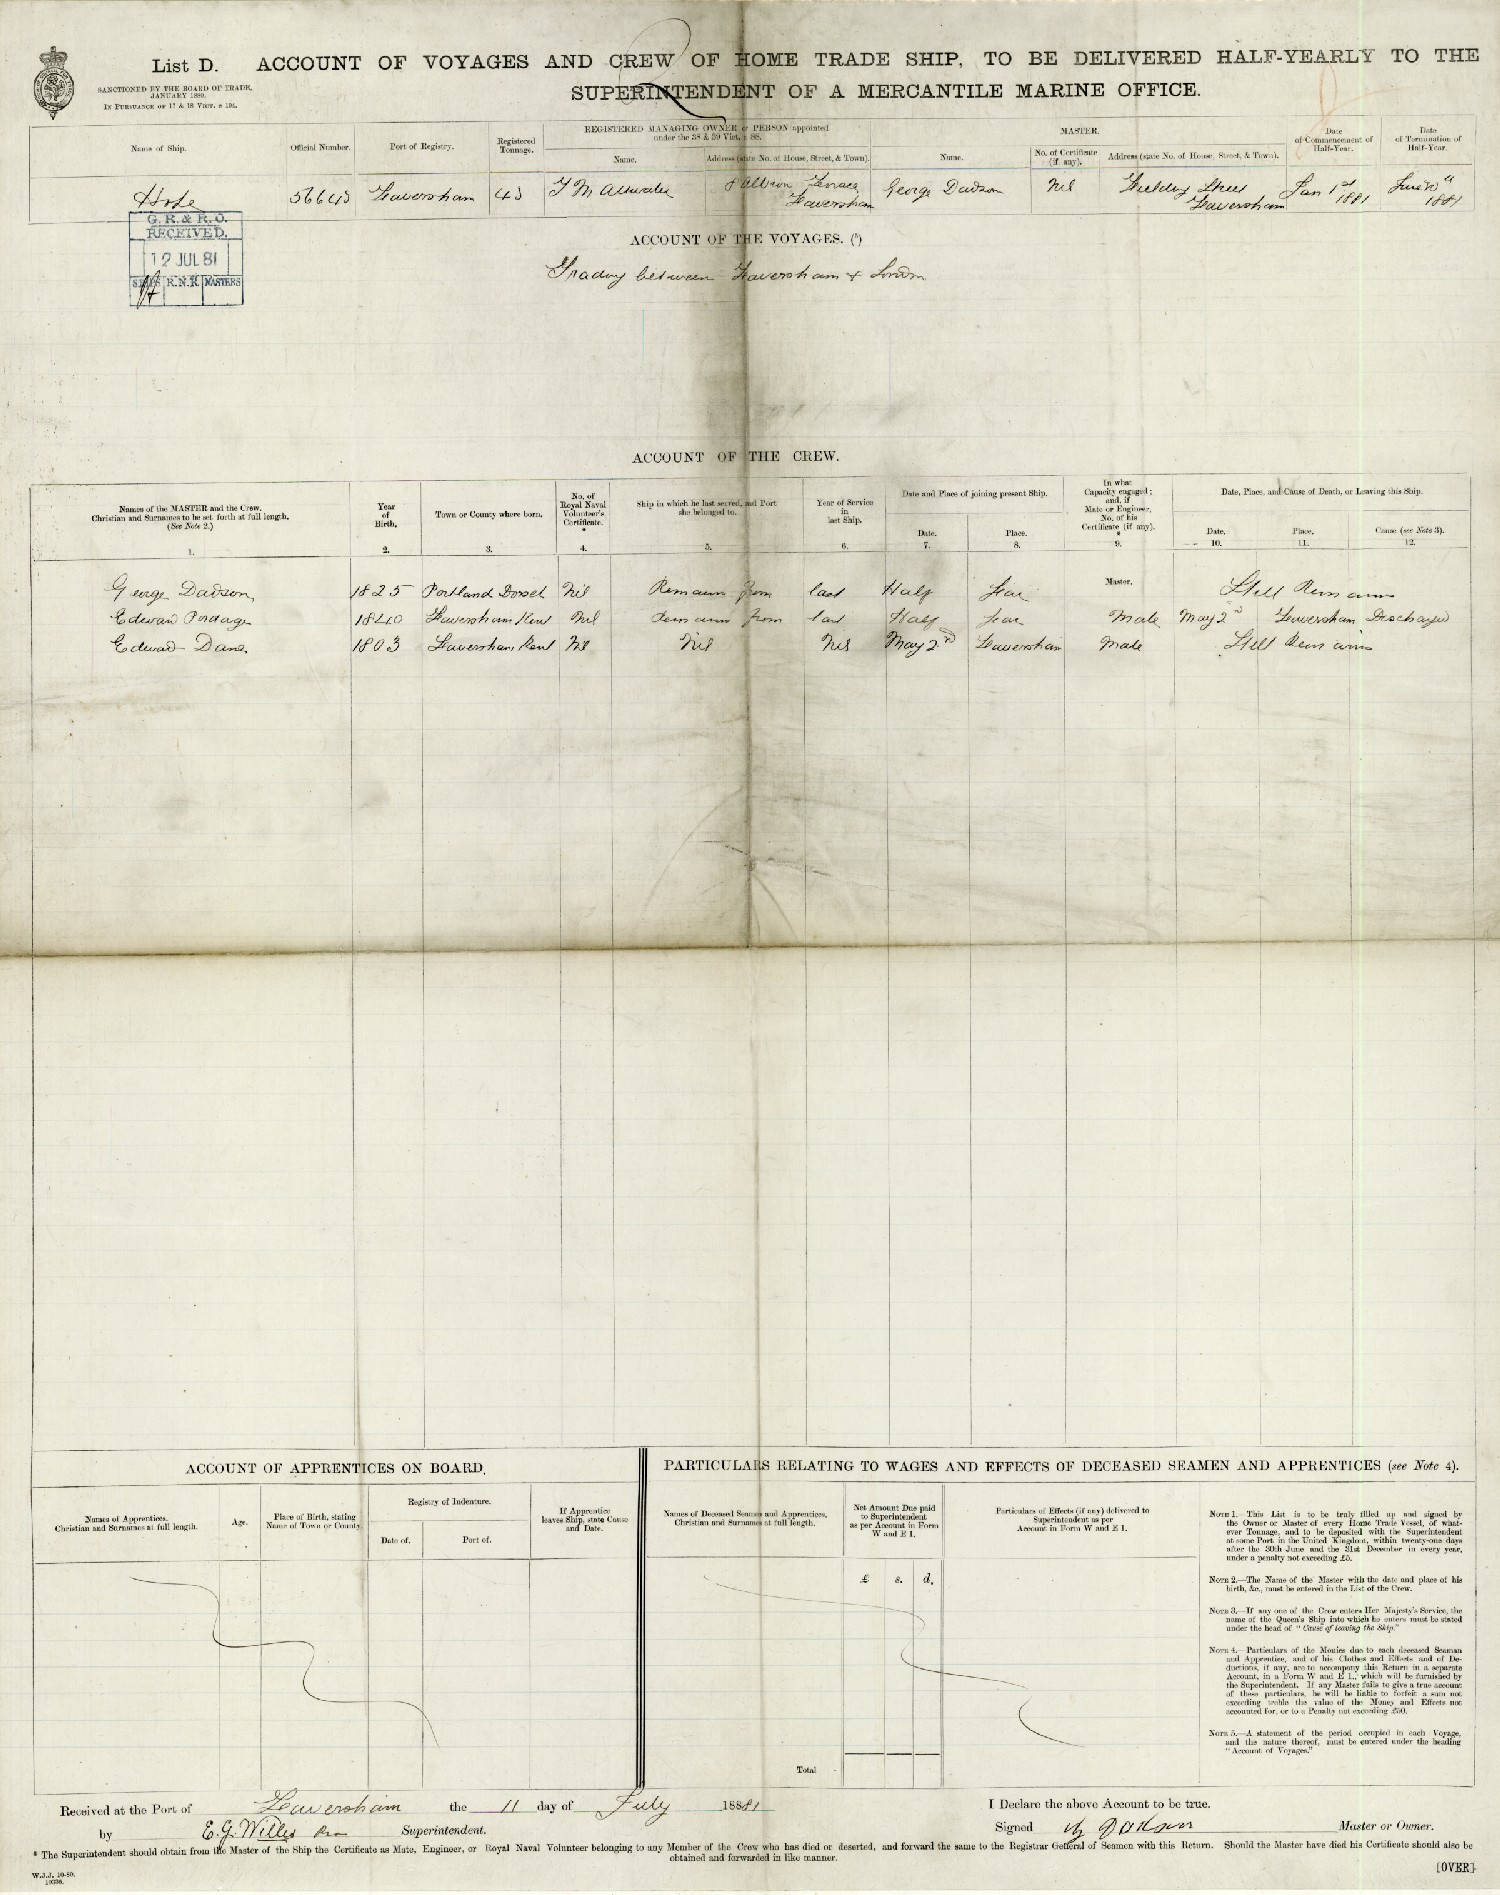 List D. ACCOUNT OF VOYAGES AND CREW OF HOME TRADE SHIP, TO BE DELIVERED HALF-YEARLY TO THE
SUPERINTENDENT OF A MERCANTILE MARINE OFFICE.
SANCTIONED BY THE BOARD OF TRADE,
JANUARY 1880.
IN PURSUANCE OF 17 & 18 VICT. c 104.
Name of Ship.
Official Number.
Port of Registry.
Registered
Tonnage.
REGISTERED MANAGING OWNER or PERSON appointed
under the 38 & 39 Vict. c 88.
Name.
Address (state No. of House, Street, & Town).
MASTER.
Name.
No. of Certificate
(if any).
Address (state No. of House, Street, & Town).
Date
of Commencement of
Half-Year.
Date
of Termination of
Half-Year.
56645 Faversham 45 Albion Terrace George Dadson Nil Street Jan 1st
Faversham Faversham 1881 1881
G. R. & R. O.
RECEIVED.
12 JUL 81
SHIPS R.N.R. MASTERS
ACCOUNT OF THE VOYAGES. (5)
Trading between Faversham & London
ACCOUNT OF THE CREW.
Names of the MASTER and the Crew.
Christian and Surnames to be set forth at full length.
(See Note 2.)
1.
Year
of
Birth.
2.
Town or County where born.
3.
No. of
Royal Naval
Volunteer's
Certificate.
*
4.
Ship in which he last served, and Port
she belonged to.
5.
Year of Service
in
last Ship.
6.
Date and Place of joining present Ship.
Date.
7.
Place.
8.
In what
Capacity engaged;
and, if
Mate or Engineer,
No. of his
Certificate (if any).
*
9.
Date, Place, and Cause of Death, or Leaving this Ship.
Date.
10.
Place.
11.
Cause (see Note 3).
12.
George Dadson 1825 Portland Dorset Nil Remains from last Half Year Master. Still Remains
Edward Pordage 1840 Faversham Kent Nil Remains from last Half Year Mate May 2nd Faversham Discharged
Edward Dane 1803 Faversham Kent Nil Nil Nil May 2nd Faversham Mate Still Remains
ACCOUNT OF APPRENTICES ON BOARD.
Names of Apprentices.
Christian and Surnames at full length.
Age.
Place of Birth, stating
Name of Town or County
Registry of Indenture.
Date of.
Port of.
If Apprentice
leaves Ship, state Cause
and Date.
PARTICULARS RELATING TO WAGES AND EFFECTS OF DECEASED SEAMEN AND APPRENTICES (see Note 4).
Names of Deceased Seamen and Apprentices,
Christian and Surnames at full length.
Net Amount Due paid
to Superintendent
as per Account in Form
W and E 1.
£ s. d.
Particulars of Effects (if any) delivered to
Superintendent as per
Account in Form W and E 1.
Total
NOTE 1.—This List is to be truly filled up and signed by
the Owner or Master of every Home Trade Vessel, of what-
ever Tonnage, and to be deposited with the Superintendent
at some Port in the United Kingdom, within twenty-one days
after the 30th June and the 31st December in every year,
under a penalty not exceeding £5.
NOTE 2.—The Name of the Master with the date and place of his
birth, &c., must be entered in the List of the Crew.
NOTE 3.—If any one of the Crew enters Her Majesty's Service, the
name of the Queen's Ship into which he enters must be stated
under the head of "Cause of leaving the Ship."
NOTE 4.—Particulars of the Monies due to each deceased Seaman
and Apprentice, and of his Clothes and Effects and of De-
ductions, if any, are to accompany this Return in a separate
Account, in a Form W and E 1., which will be furnished by
the Superintendent. If any Master fails to give a true account
of these particulars, he will be liable to forfeit a sum not
exceeding treble the value of the Money and Effects not
accounted for, or to a Penalty not exceeding £50.
NOTE 5.—A statement of the period occupied in each Voyage,
and the nature thereof, must be entered under the heading
"Account of Voyages."
Received at the Port of Faversham the 11 day of July 1881
by E. G. Willes Superintendent.
I Declare the above Account to be true.
Signed G Dadson Master or Owner.
* The Superintendent should obtain from the Master of the Ship the Certificate as Mate, Engineer, or Royal Naval Volunteer belonging to any Member of the Crew who has died or deserted, and forward the same to the Registrar General of Seamen with this Return. Should the Master have died his Certificate should also be
obtained and forwarded in like manner.
W.J.J. 10-80.
[OVER]